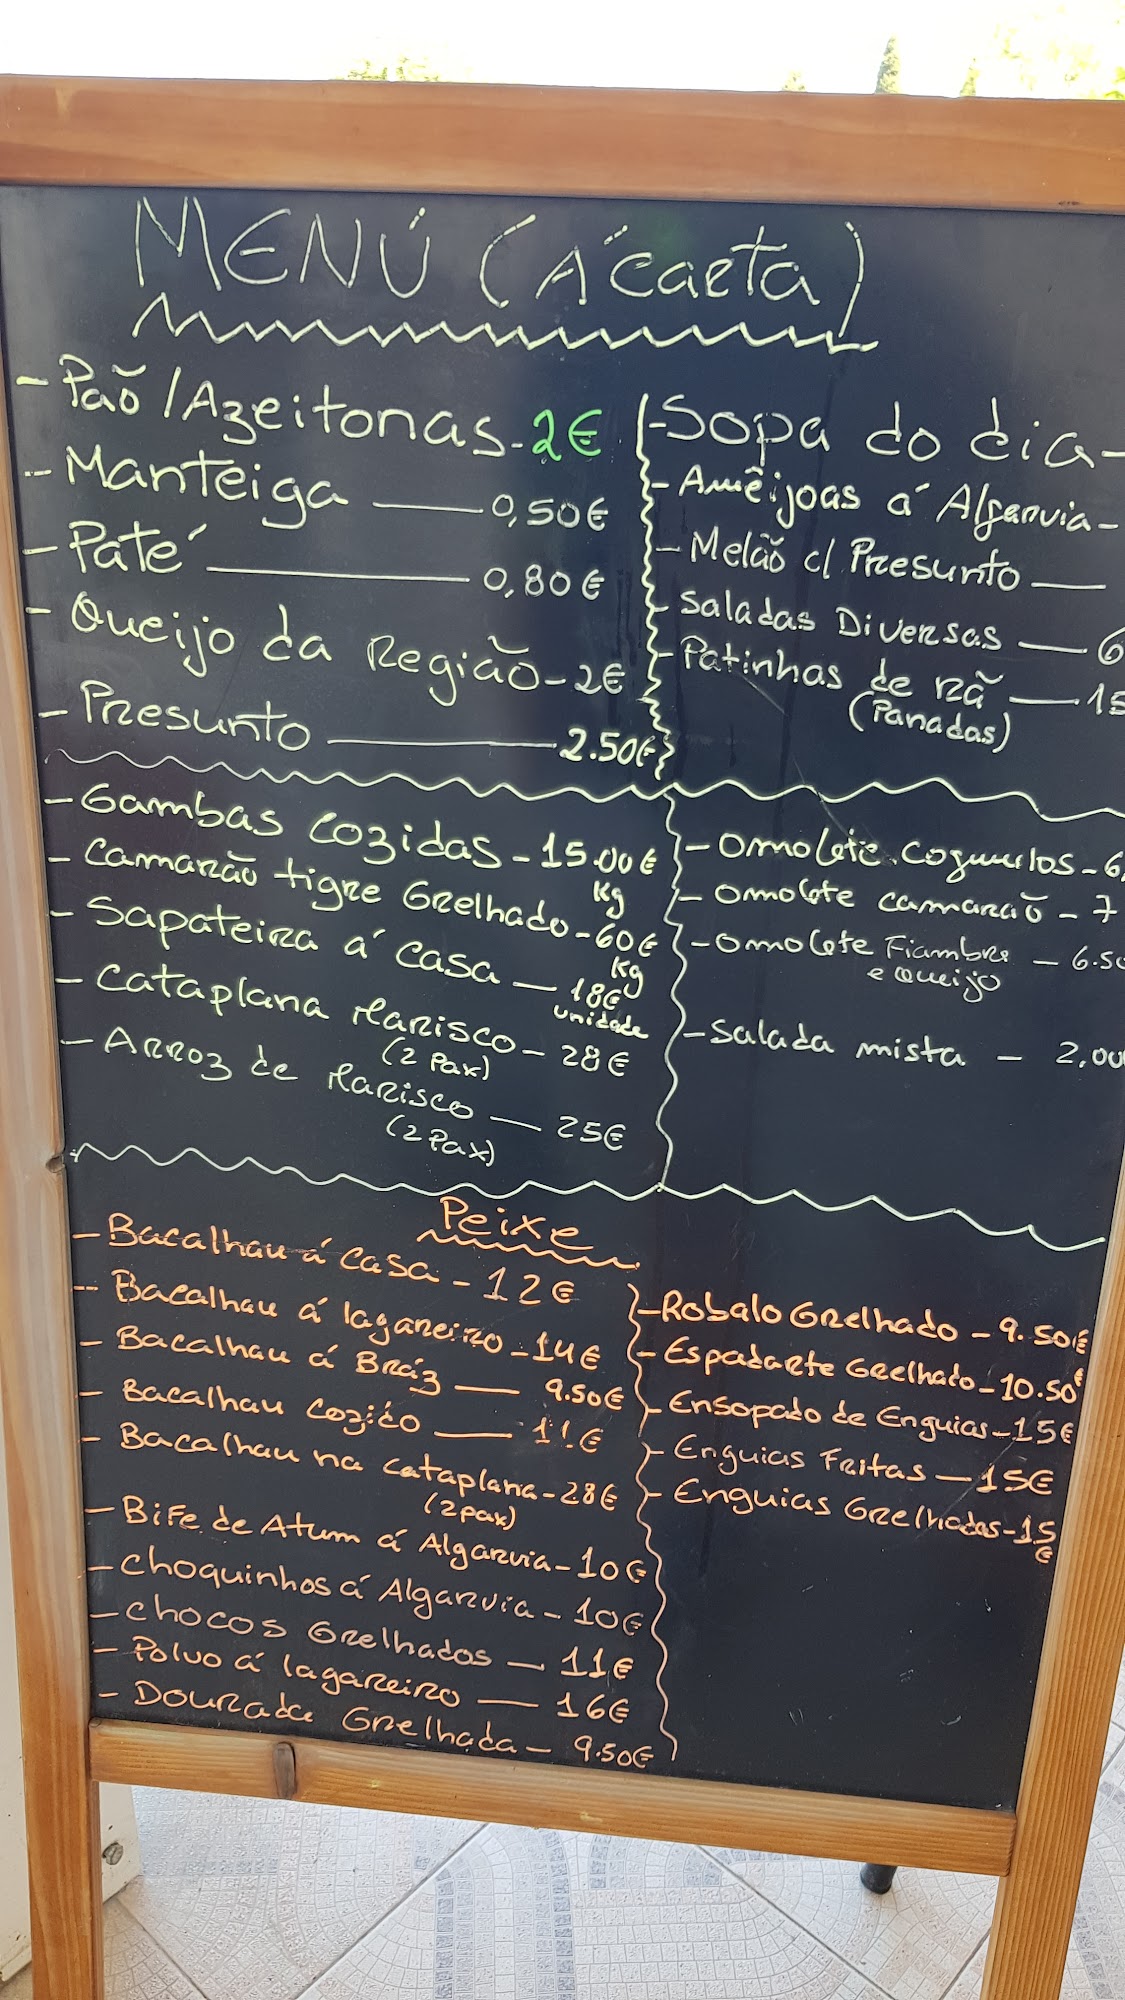 MENÚ (Á carta)
- Paõ / Azeitonas - 2€
- Manteiga — 0,50€
- Paté — 0,80€
- Queijo da Região - 2€
- Presunto — 2.50€
- Sopa do dia -
- Amêijoas á Algarvia -
- Melão c/ Presunto —
- Saladas Diversas — 6
- Patinhas de rã — 15
(Panadas)
- Gambas Cozidas - 15.00€
Kg
- Camarão tigre Grelhado - 60€
Kg
- Sapateira á Casa — 18€
unidade
- Cataplana Marisco - 28€
(2 Pax)
- Arroz de Marisco — 25€
(2 Pax)
- Omolete Cogumelos - 6,
- Omolete camarão - 7
- Omolete Fiambre — 6.50
e Queijo
- Salada mista — 2,00
Peixe
- Bacalhau á Casa - 12€
- Bacalhau á lagareiro - 14€
- Bacalhau á Bráz — 9.50€
- Bacalhau Cozido — 11.€
- Bacalhau na Cataplana - 28€
(2 pax)
- Bife de Atum á Algarvia - 10€
- Choquinhos á Algarvia - 10€
- Chocos Grelhados — 11€
- Polvo á lagareiro — 16€
- Dourada Grelhada - 9.50€
- Robalo Grelhado - 9.50€
- Espadarte Grelhado - 10.50€
- Ensopado de Enguias - 15€
- Enguias Fritas — 15€
- Enguias Grelhadas - 15
€